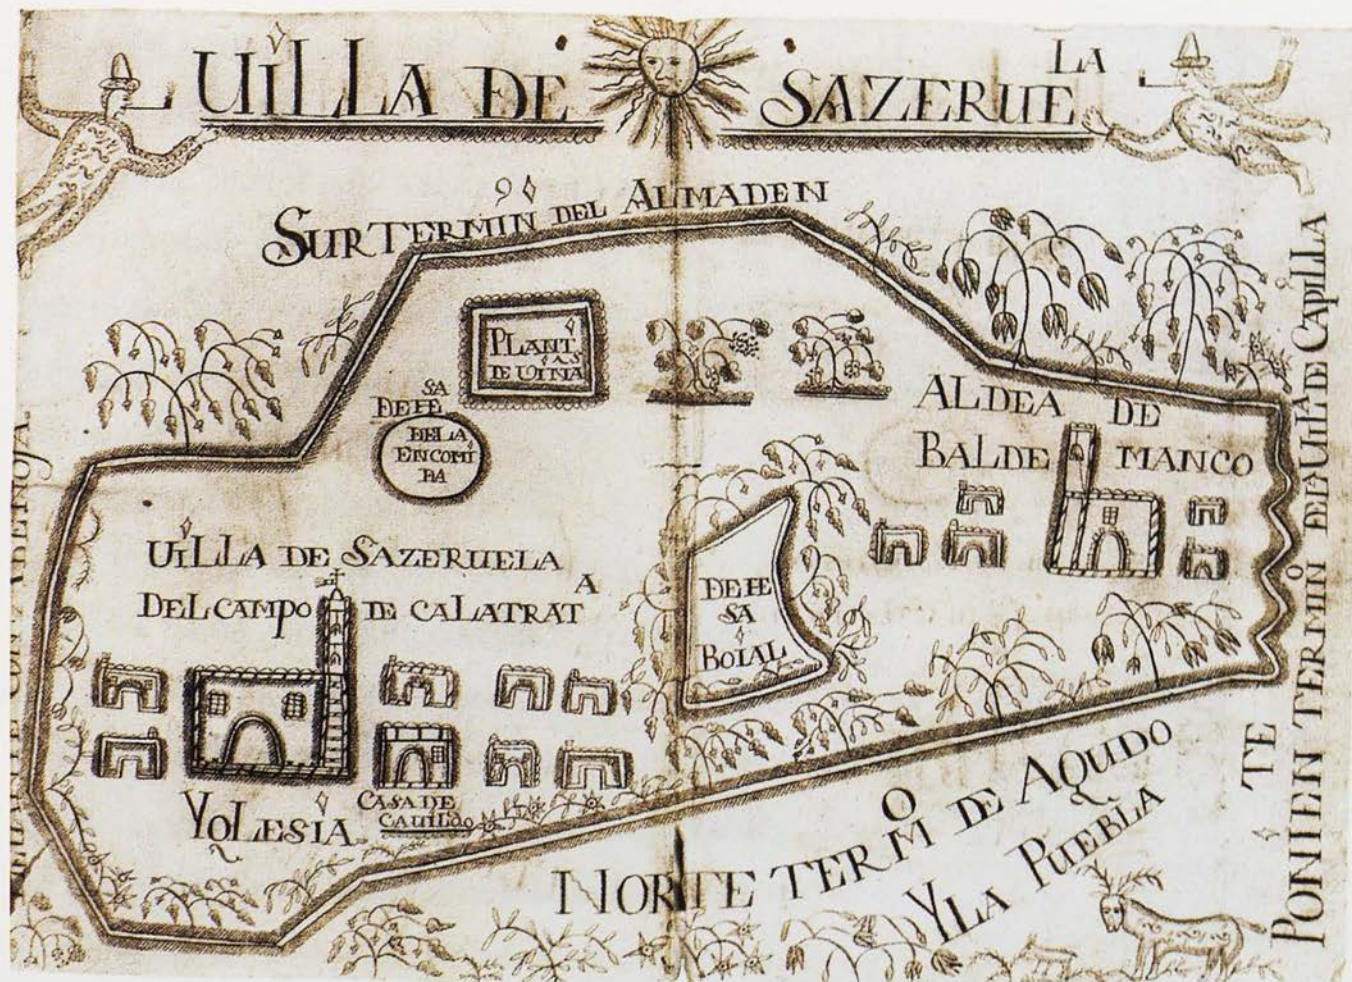 UiLLA DE SAZERUE LA
SUR TERMIN º DEL ALMADEN
PLANT
AS
DE UINA
DEHE SA
DE LA
ENCOMI
DA
ALDEA DE
BALDE MANCO
UiLLA DE SAZERUELA
DEL CAMPO DE CALATRAT A
DEHE
SA
BOIAL
YGLESIA
CASA DE
CAUILDO
NORTE TERM O DE AGUDO
Y LA PUEBLA
PONIEN TE TERMIN O DE LA UILLA DE CAPILLA